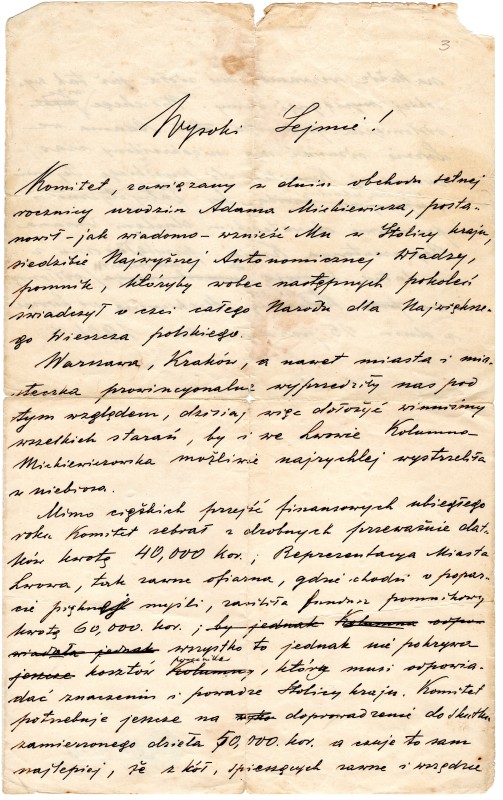 3
Wysoki Sejmie!
Komitet, zawiązany z dniem obchodu setnej
rocznicy urodzin Adama Mickiewicza, posta-
nowił – jak wiadomo – wznieść Mu w Stolicy kraju,
siedzibie Najwyższej Autonomicznej Władzy,
pomnik, któryby wobec następnych pokoleń
świadczył o czci całego Narodu dla Największe-
go Wieszcza polskiego.
Warszawa, Kraków, a nawet miasta i mia-
steczka prowincyonalne wyprzedziły nas pod
tym względem, dzisiaj więc dołożyć winniśmy
wszelkich starań, by i we Lwowie Kolumna
Mickiewiczowska możliwie najrychlej wystrzeliła
w niebiosa.
Mimo ciężkich przejść finansowych ubiegłego
roku Komitet zebrał z drobnych przeważnie dat-
ków kwotę 40,000 kor.; Reprezentacya Miasta
Lwowa, tak zawsze ofiarna, gdzie chodzi o popar-
cie pięknej myśli, zasiliła fundusz pomnikowy
kwotą 60,000. kor.; by jednak Kolumna odpo-
wiadała jednak wszystko to jednak nie pokrywa
jeszcze kosztów Kolumny, pomnika, który musi odpowia-
dać znaczeniu i powadze Stolicy kraju. Komitet
potrzebuje jeszcze na doprowadzenie do skutku
zamierzonego dzieła 50,000. kor. a czuje to sam
najlepiej, że z kół, spieszących zawsze i wszędzie